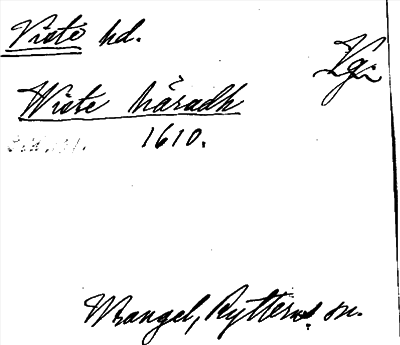 Viste hd.
Vg.
Wiste häradh
1610.
Wrangel, Rytteres m.